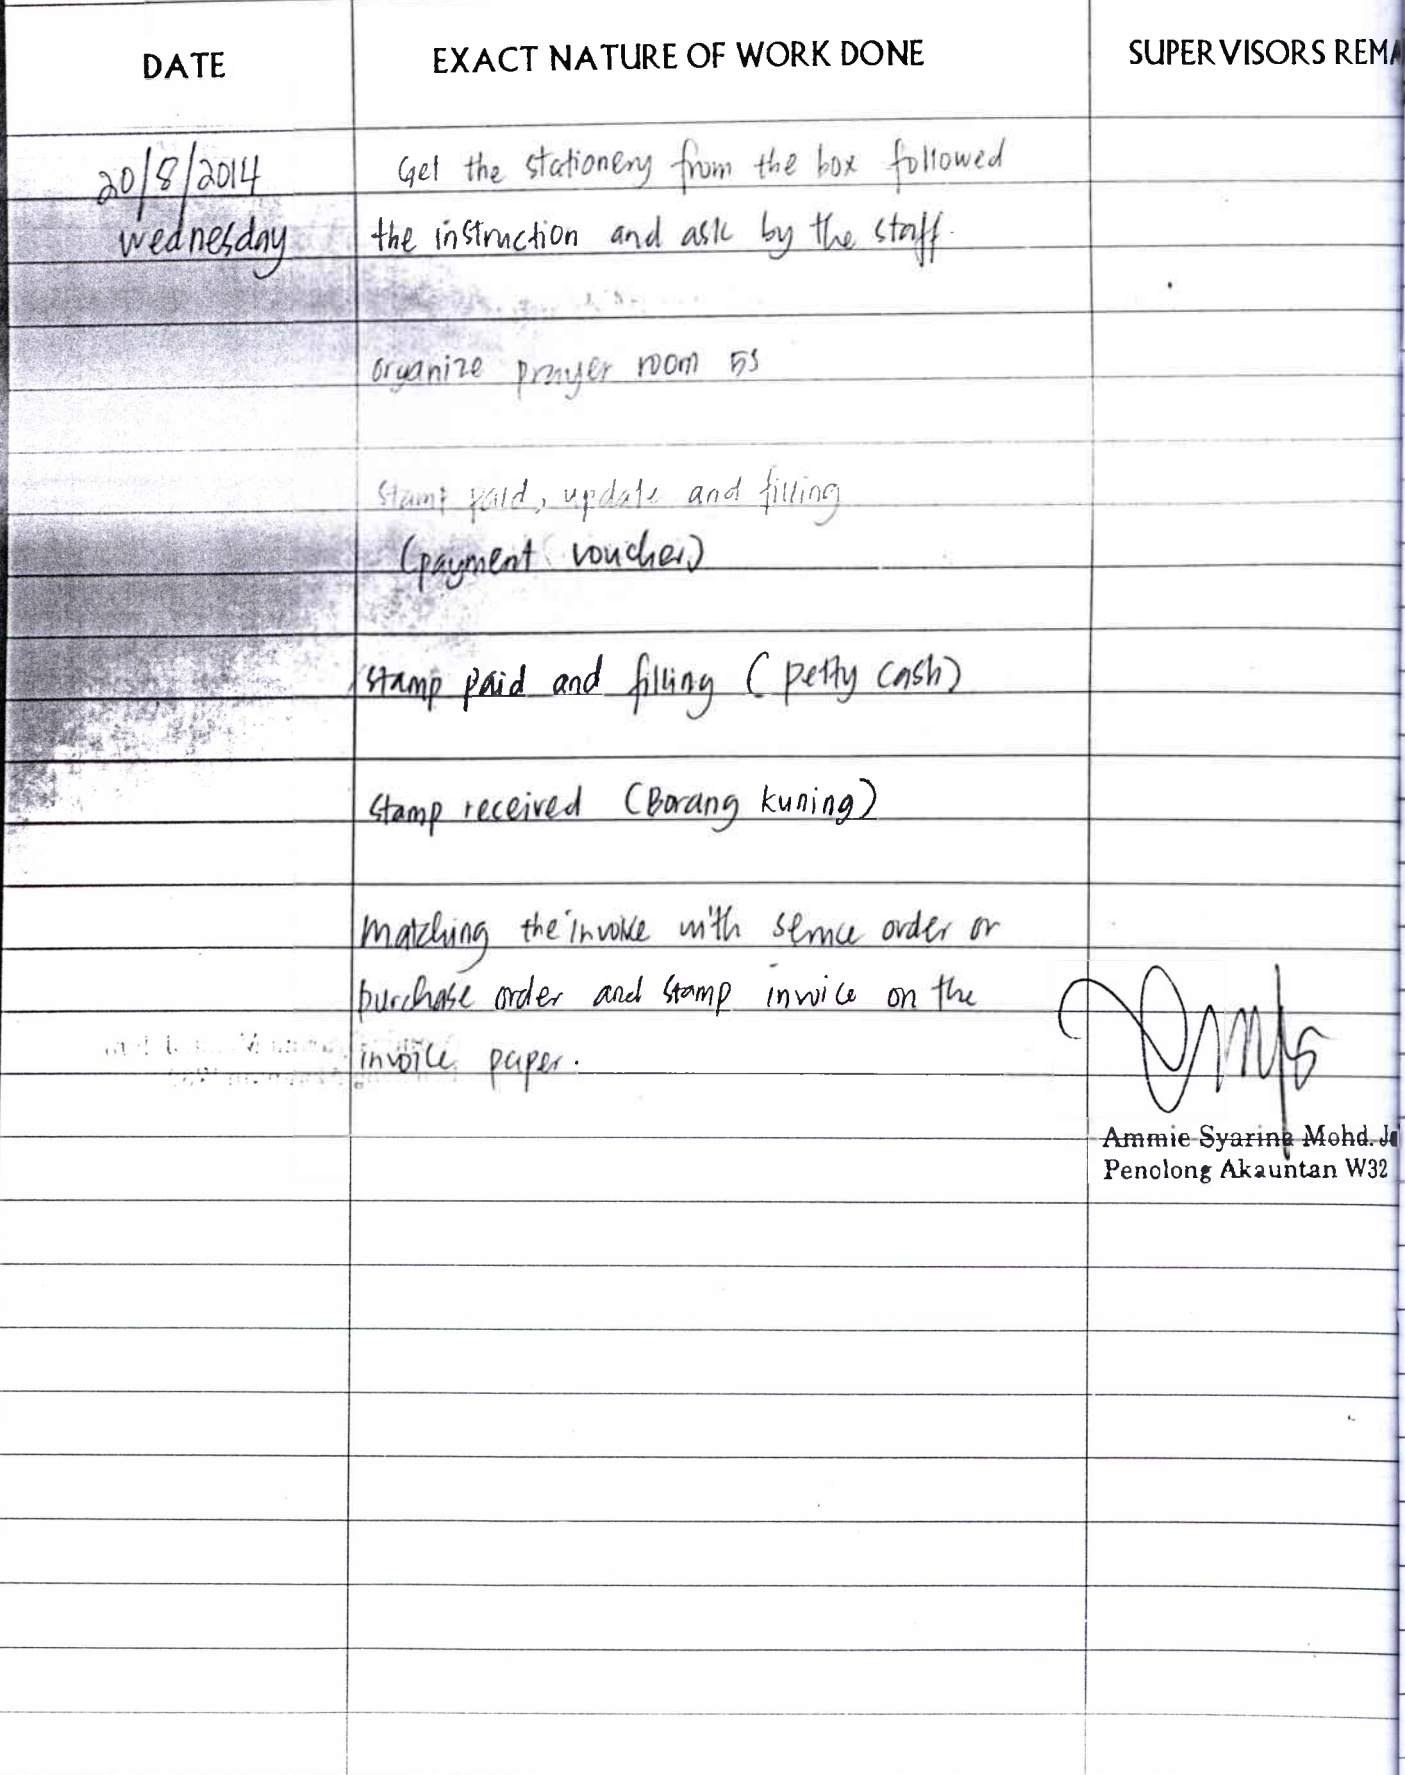 DATE EXACT NATURE OF WORK DONE SUPERVISORS REMA
20/8/2014 Get the stationery from the box followed
wednesday the instruction and ask by the staff.
organize prayer room 5S
stamp paid, update and filling
(payment voucher)
stamp paid and filling (petty cash)
stamp received (Borang kuning)
matching the invoice with service order or
purchase order and stamp invoice on the
invoice paper.
Ammie Syarina Mohd. Ja
Penolong Akauntan W32